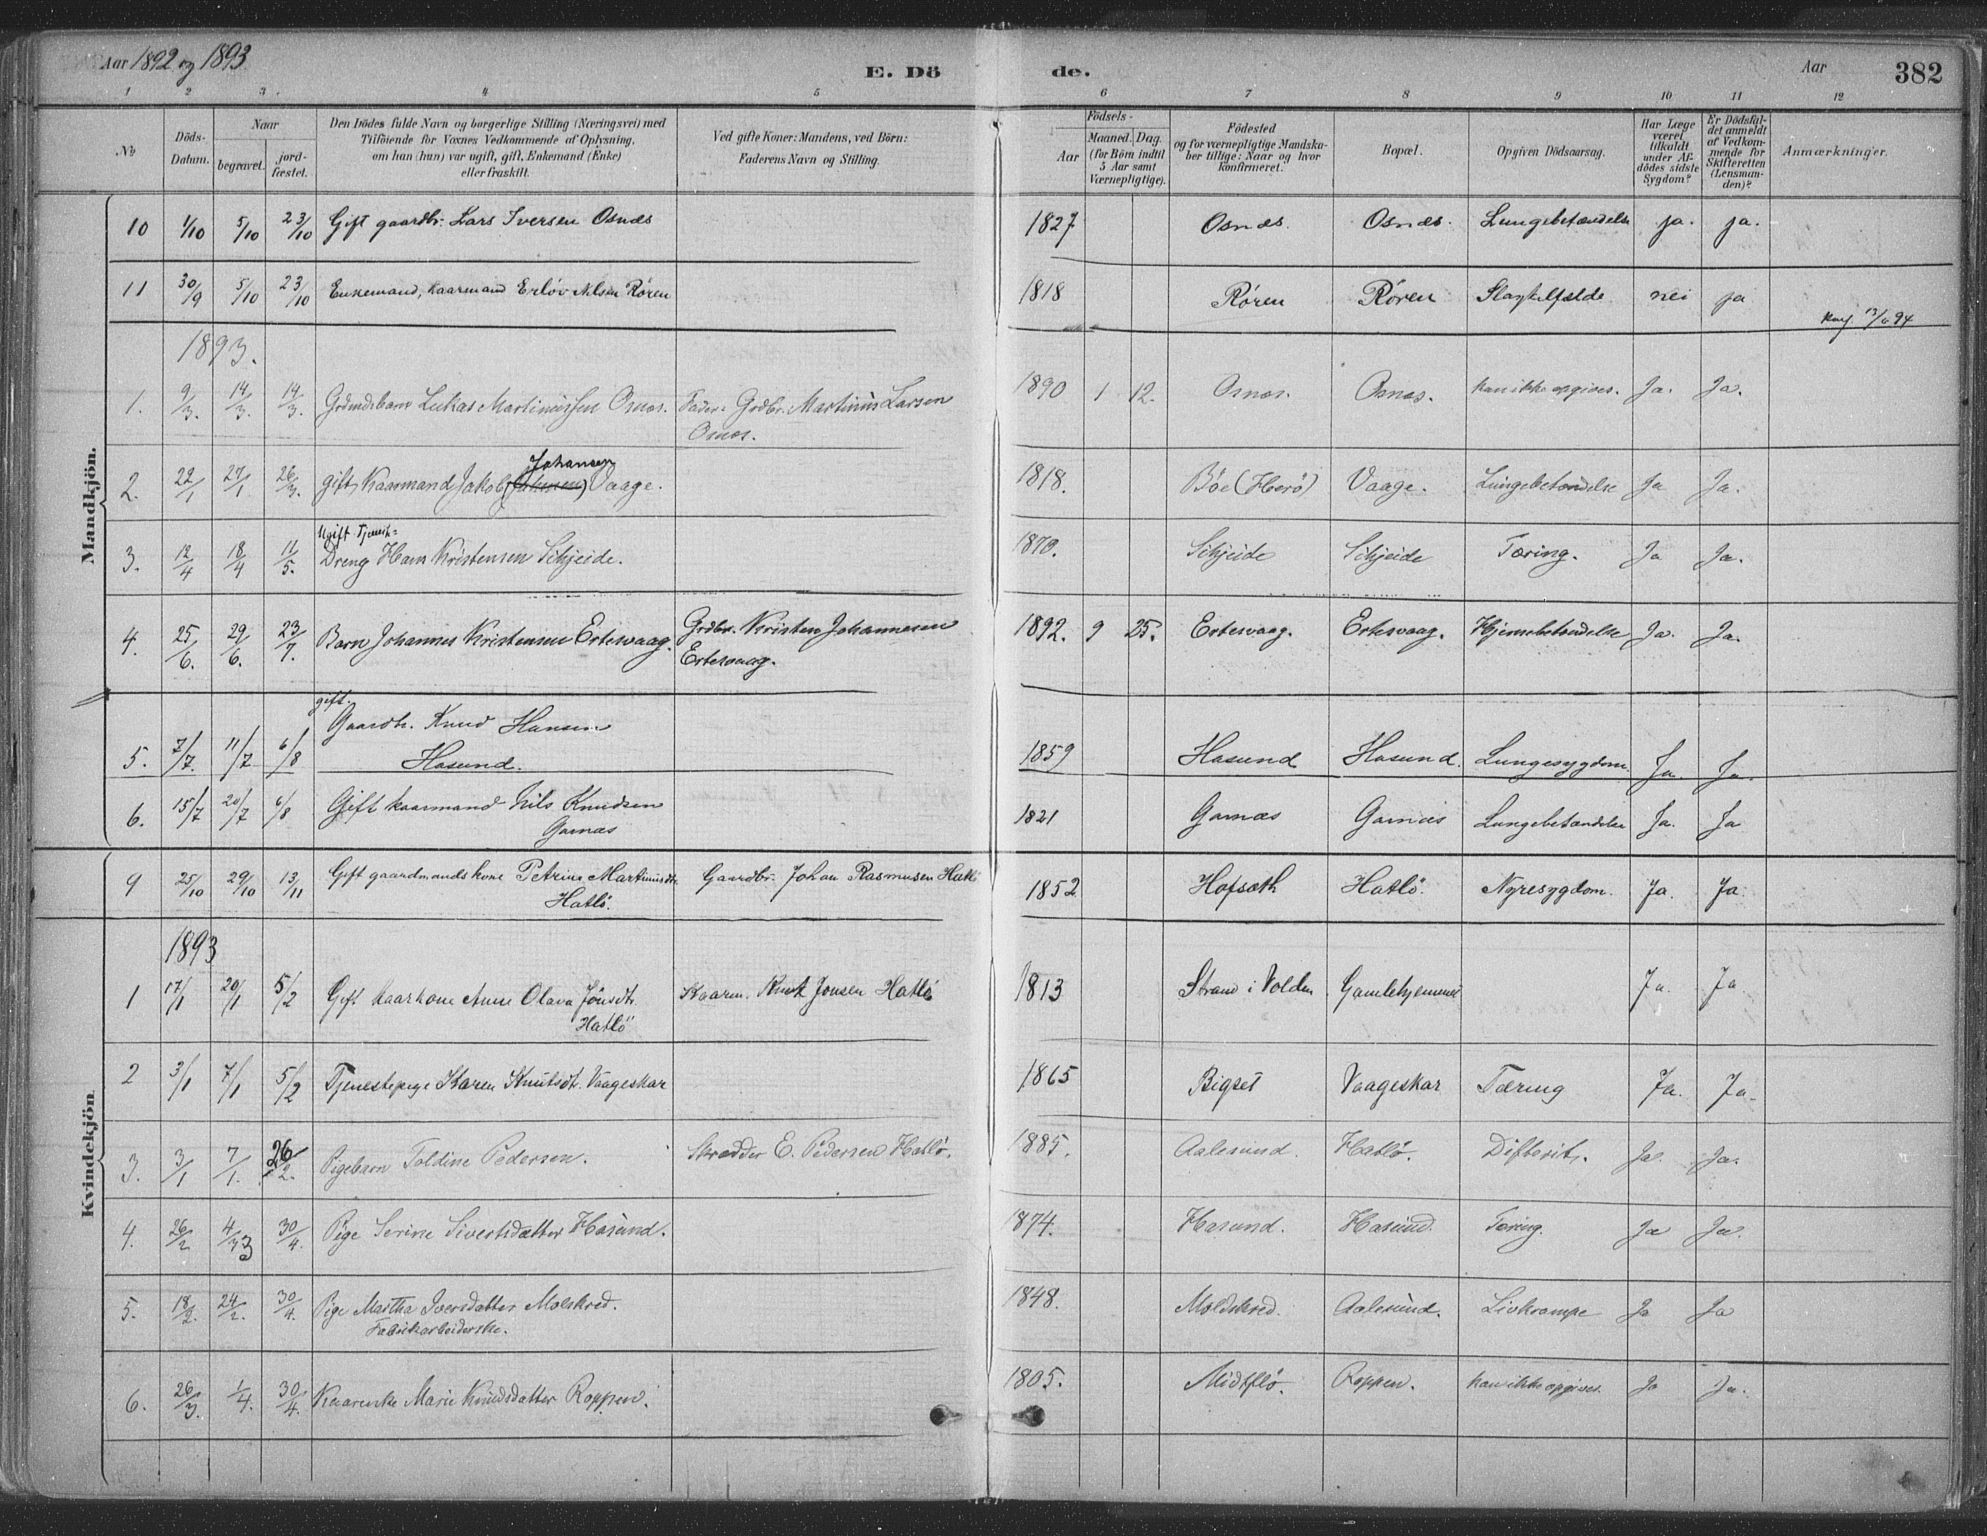 Aar 1892 og 1893
E. Dö de.
Aar
382
1 2 3. 4 5 6 7 8 9 10 11 12
No
Döds-Datum.
Naar
begravet.
jord-fæstet.
Den Dödes fulde Navn og borgerlige Stilling (Næringsvei) med
Tilföiende for Voxnes Vedkommende af Oplysning,
om han (hun) var ugift, gift, Enkemand (Enke)
eller fraskilt.
Ved gifte Koner: Mandens, ved Börn:
Faderens Navn og Stilling.
Födsels-
Aar
Maaned. Dag.
(for Börn indtil
5 Aar samt
Værnepligtige).
Födested
og for værnepligtige Mandska-
ber tillige: Naar og hvor
konfirmeret.
Bopæl.
Opgiven Dödsaarsag.
Har Læge
været
tilkaldt
under Af-
dödes sidste
Sygdom?
Er Dödsfal-
det anmeldt
af Vedkom-
mende for
Skifteretten
(Lensman-
den)?
Anmærkninger.
Mandkjön.
10 1/10 5/10 23/10 Gift gaardbr. Lars Iversen Osnes 1827 Osnes. Osnes. Lungebetændelse ja. ja.
11 30/9 5/10 23/10 Enkemand, kaarmand Erløv Nilsen Røren 1818 Røren Røren Slagtilfælde nei ja 94
1893.
1. 9/3. 14/3. 14/3. Grdmdsbarn Lukas Martinussen Osnes. Fader: Grdbr. Martinus Larsen 1890 1 12. Osnes. Osnes. kan ikke opgives. Ja. Ja.
Osnes.
Johansen
2. 22/1 27/1. 26/3. gift, Kaarmand Jakob Vaage. 1818. Böe (Herö) Vaage. Lungebetændelse Ja Ja.
Ugift Tjeneste-
3. 12/4 18/4 11/5. Dreng Hans Kristensen Sikjeide. 1870. Sikjeide Sikjeide Tæring. Ja Ja.
4. 25/6. 29/6. 23/7. Barn Johannes Kristensen Ertesvaag. Grdbr. Kristen Johannesen 1892. 9 25. Ertesvaag. Ertesvaag. Hjernebetændelse Ja. Ja.
Ertesvaag.
gift.
Gaardbr. Knud Hansen
5. 7/7. 11/7 6/8 Hasund. 1859 Hasund Hasund. Lungesygdom Ja. Ja.
6. 15/7 20/7 6/8 Gift kaarmand Nils Knudsen 1821 Garnæs Garnæs Lungebetændelse Ja. Ja
Garnæs
9 25/10 29/10 13/11 Gift gaardmandskone Petrine Martinusdtr. Gaardbr. Johan Rasmusen Hatlö 1852 Hofsæth Hatlö. Nyresygdom. Ja. Ja.
Hatlö.
Kvindekjön.
1893
1 17/1 20/1 5/2 Gift kaarkone Anne Olava Jönsdt. Kaarm. Knut Jonsen Hatlö 1813 Strand i Volden Ja. Ja.
Hatlö
2 3/1 7/1 5/2 Tjenestepige Karen Knutsdt. Vaageskar 1865 Bigset Vaageskar Tæring Ja. Ja.
3. 3/1 7/1. 26/2. Pigebarn Toldine Pedersen. Skrædder E. Pedersen Hatlö. 1885. Aalesund. Hatlö. Difterit. Ja. Ja.
4. 26/2 4/3 30/4. Pige Serine Sivertsdatter Hasund. 1874. Hasund. Hasund. Tæring. Ja Ja.
5. 18/2. 24/2. 30/4. Pige Martha Iversdatter Molskred. 1848. Moldskred. Aalesund. Livkrampe Ja Ja
Fabrikarbeiderske.
6. 26/3. 1/4. 30/4. Kaarenke Marie Knudsdatter Roppen. 1805. Midtflö. Roppen. kan ikke opgives. Ja Ja.